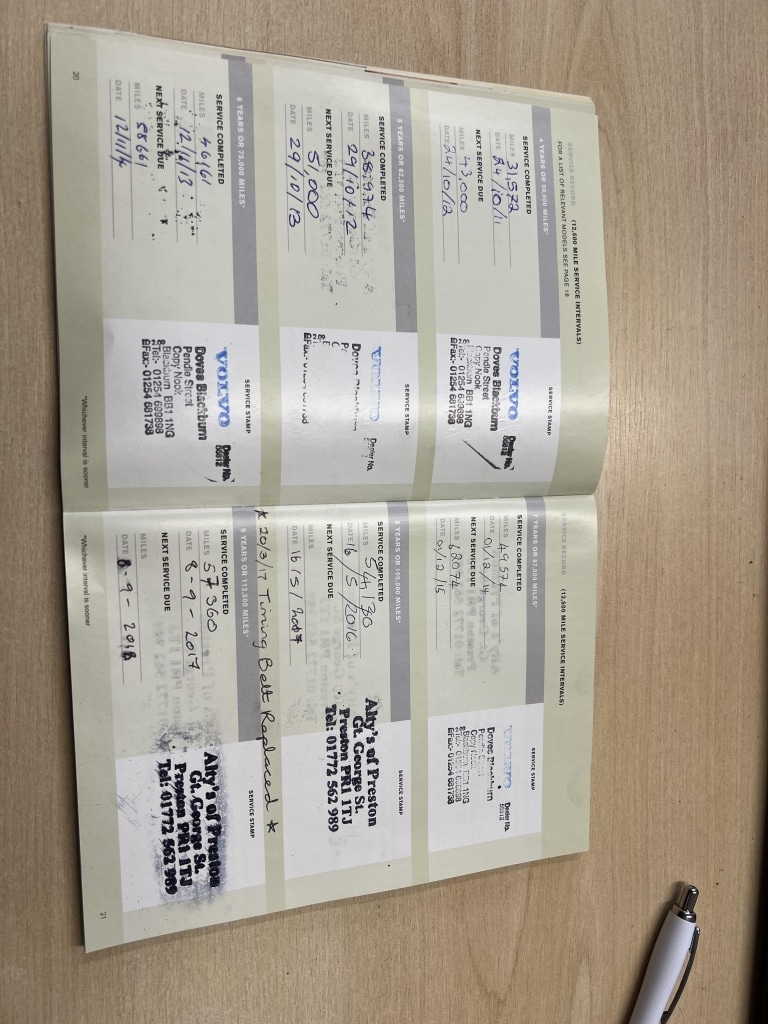 SERVICE RECORD (12,500 MILE SERVICE INTERVALS)
FOR A LIST OF RELEVANT MODELS SEE PAGE 18
4 YEARS OR 50,000 MILES*
SERVICE COMPLETED
MILES 31,572
DATE 24/10/11
NEXT SERVICE DUE
MILES 43,000
DATE 24/10/12
SERVICE STAMP
VOLVO
Dealer No.
Doves Blackburn
Pendle Street
Copy Nook
Blackburn BB1 1NG
Tel:- 01254 699898
Fax:- 01254 681738
5 YEARS OR 62,500 MILES*
SERVICE COMPLETED
MILES 38974
DATE 29/10/12
NEXT SERVICE DUE
MILES 51,000
DATE 29/10/13
SERVICE STAMP
Dealer No.
6 YEARS OR 75,000 MILES*
SERVICE COMPLETED
MILES 46161
DATE 12/11/13
NEXT SERVICE DUE
MILES 58661
DATE 12/11/14
SERVICE STAMP
VOLVO
Dealer No.
Doves Blackburn
Pendle Street
Copy Nook
Blackburn BB1 1NG
Tel:- 01254 699898
Fax:- 01254 681738
*Whichever interval is sooner
20
SERVICE RECORD (12,500 MILE SERVICE INTERVALS)
7 YEARS OR 87,500 MILES*
SERVICE COMPLETED
MILES 49574
DATE 01/12/14
NEXT SERVICE DUE
MILES 62074
DATE 01/12/15
SERVICE STAMP
VOLVO
Dealer No.
Doves Blackburn
Blackburn BB1 1NG
Fax:- 01254 681738
8 YEARS OR 100,000 MILES*
SERVICE COMPLETED
MILES 54130
DATE 16/5/2016
NEXT SERVICE DUE
MILES
DATE 16/5/2017
SERVICE STAMP
Alty's of Preston
Gt. George St.
Preston PR1 1TJ
Tel: 01772 562 989
* 20/3/17 Timing Belt Replaced *
9 YEARS OR 112,500 MILES*
SERVICE COMPLETED
MILES 57360
DATE 8-9-2017
NEXT SERVICE DUE
MILES
DATE 8-9-2018
SERVICE STAMP
Alty's of Preston
Gt. George St.
Preston PR1 1TJ
Tel: 01772 562 989
*Whichever interval is sooner
21